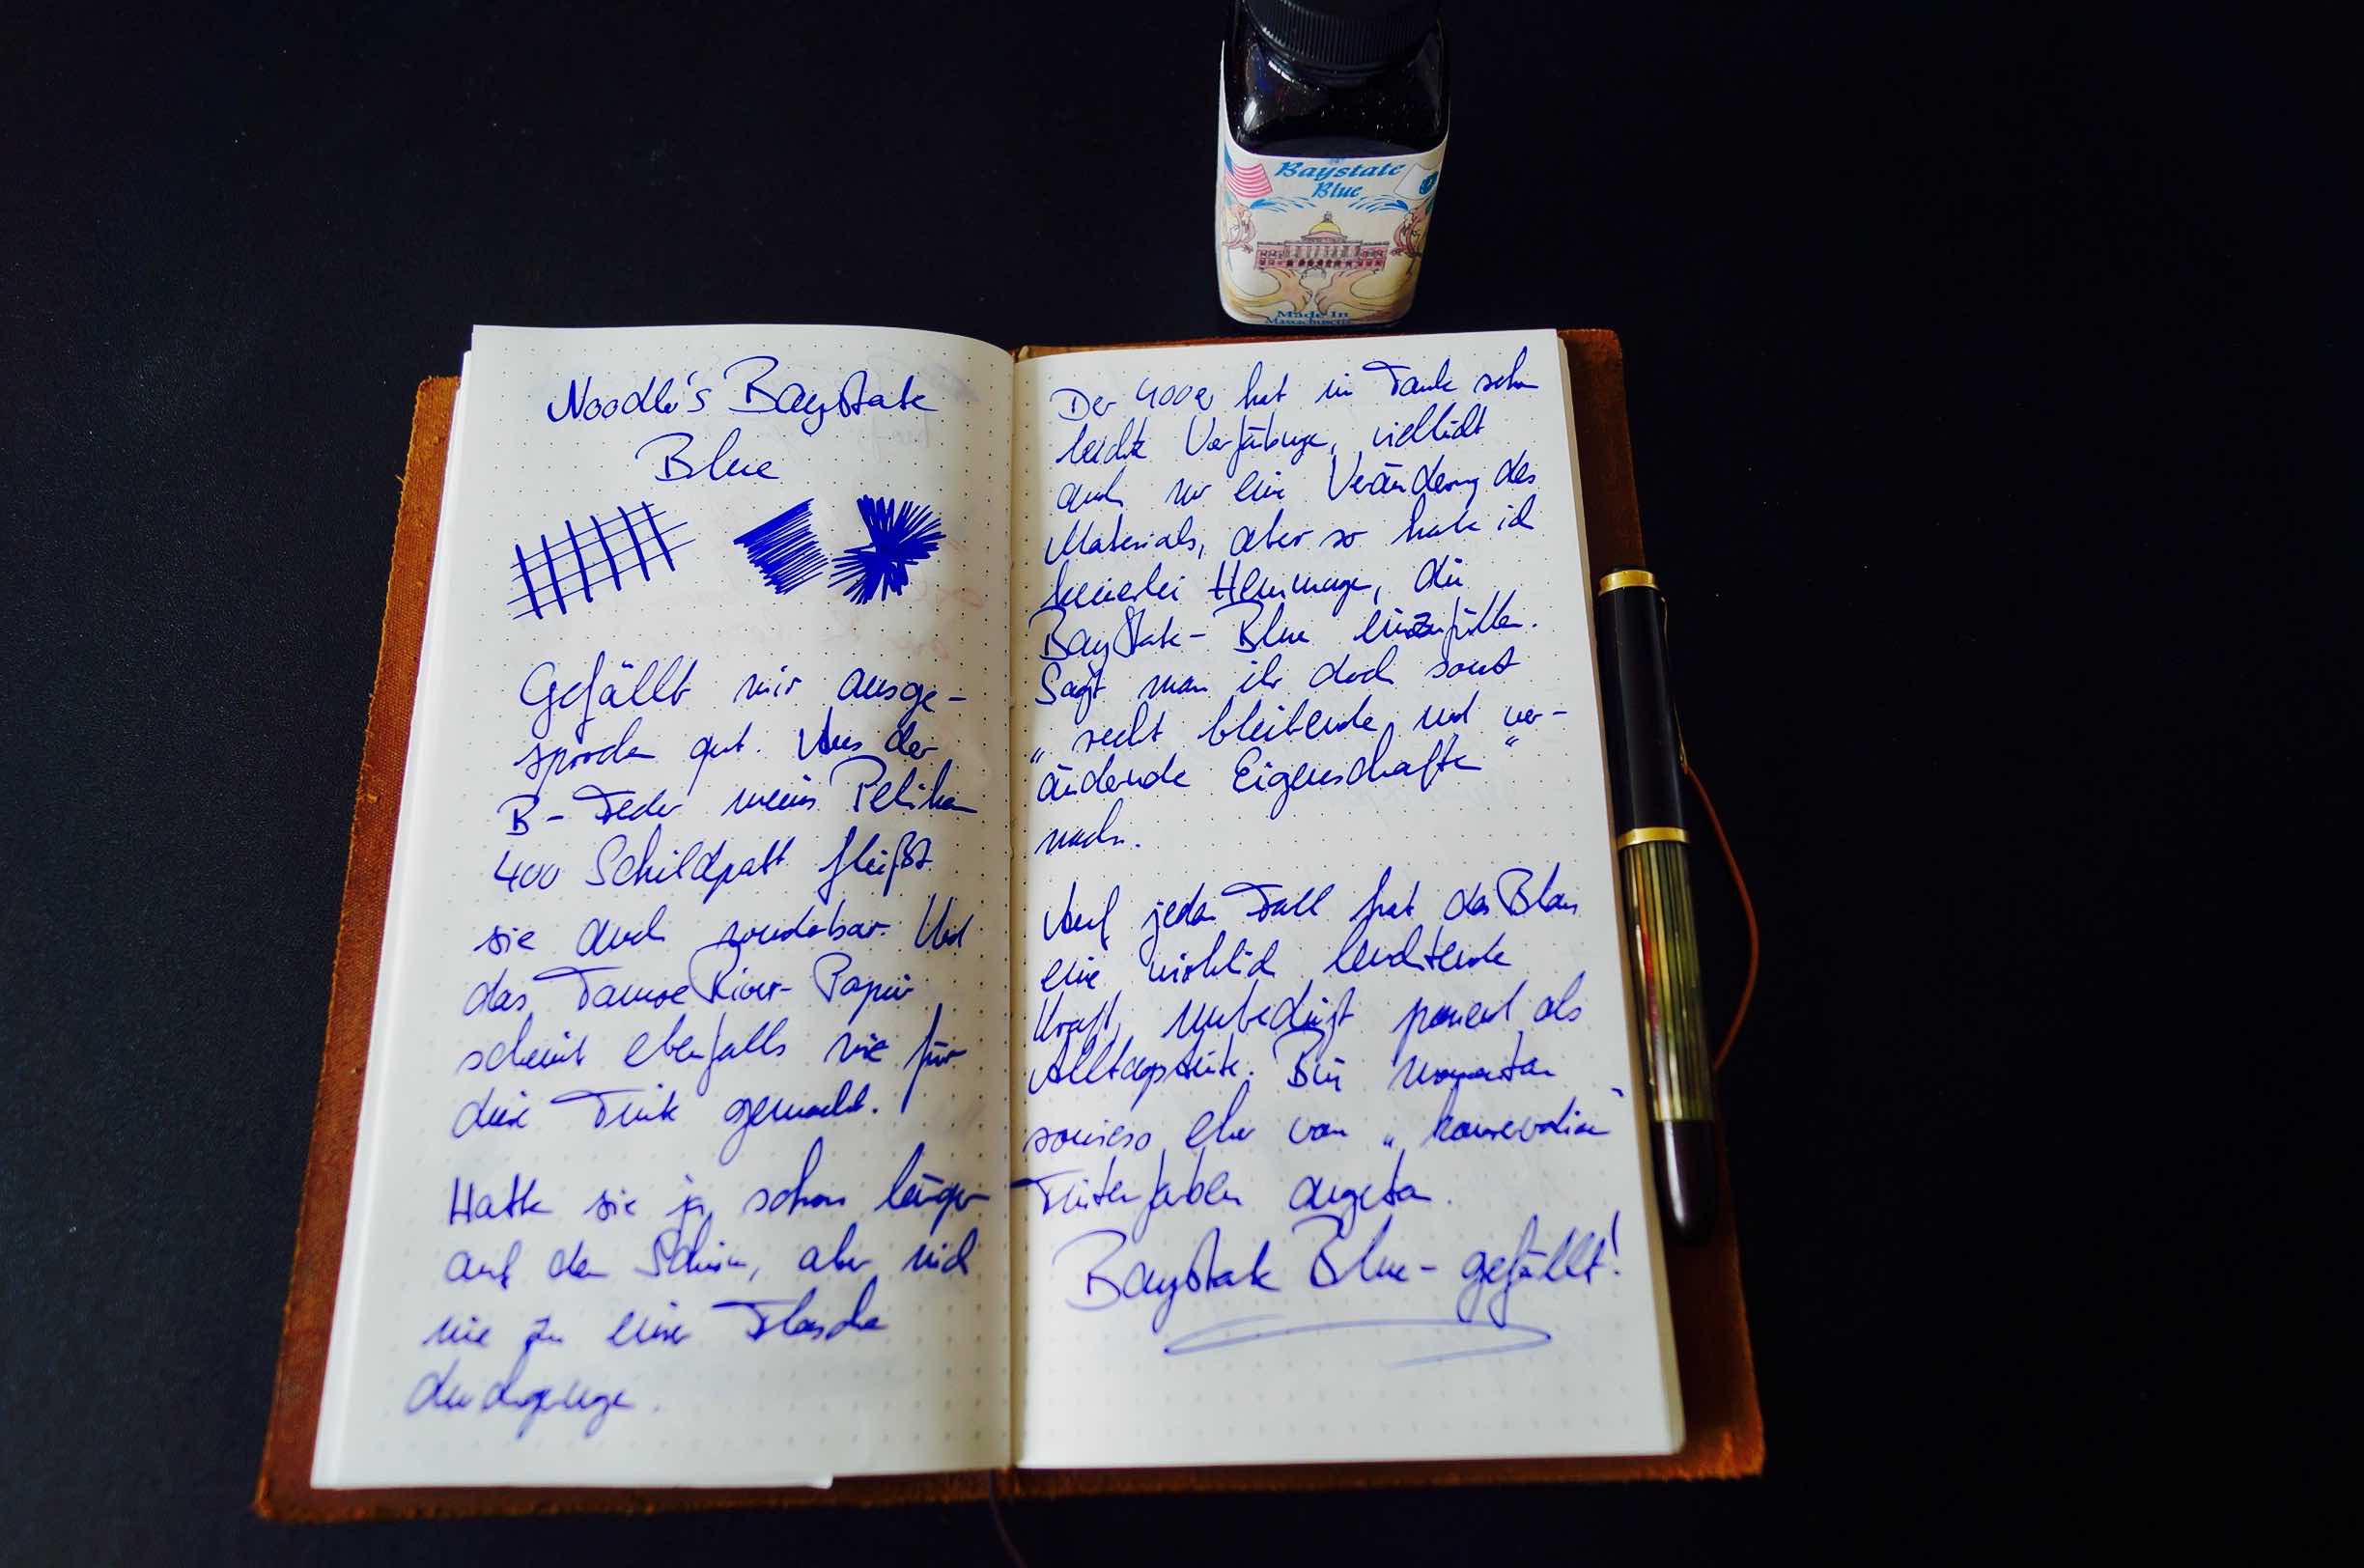 Baystate
Blue
Made In
Massachusetts
Noodler's Baystate
Blue
Gefällt mir ausge-
sprochen gut. Aus der
B-Feder meines Pelikan
400 Schildpatt fließt
sie auch wunderbar. Und
das Tamoe River-Papier
scheint ebenfalls wie für
diese Tinte gemacht.
Hatte sie ja schon länger
auf dem Schirm, aber mich
nie zu einer Flasche
durchgerungen.
Der 400er hat im Tank schon
leichte Verfärbungen, vielleicht
auch nur eine Veränderung des
Materials, aber so hatte ich
keinerlei Hemmungen, die
Baystate-Blue einzufüllen.
Sagt man ihr doch sonst
„recht bleibende und ver-
ändernde Eigenschaften“
nach.
Auf jeden Fall hat das Blau
eine wirklich leuchtende
Kraft, unbedingt passend als
Alltagstinte. Bin momentan
sowieso eher von „konservativen“
Tintenfarben angetan.
Baystate Blue - gefällt!